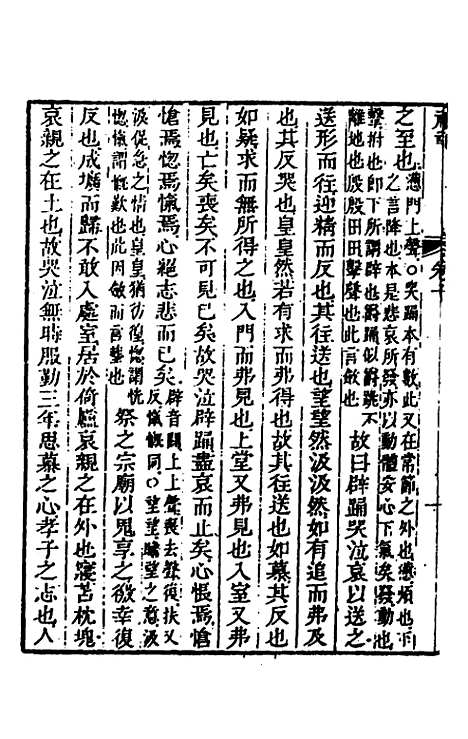 之至也懣門上聲○哭踊本有數此又在常節之外也懣煩也下
之言降也本是悲哀所發亦以動體安心下氣矣發動也
擊拊也卽下所謂辟也爵踊似爵跳不
離地也殷殷田田擊聲也此言斂也
故曰辟踊哭泣哀以送之
送形而往迎精而反也其往送也望望然汲汲然如有追而弗及
也其反哭也皇皇然若有求而弗得也故其往送也如慕其反也
如疑求而無所得之也入門而弗見也上堂又弗見也入室又弗
見也亡矣喪矣不可見已矣故哭泣辟踊盡哀而止矣心悵焉愴
焉惚焉愾焉心絕志悲而已矣
辟音闢上上聲喪去聲復扶又
反愾慨同○望望瞻望之意汲
汲促急之情也皇皇猶彷徨惚謂恍
惚愾謂慨歎也此因斂而言葬也
祭之宗廟以鬼享之徼幸復
反也成壙而歸不敢入處室居於倚廬哀親之在外也寢苫枕塊
哀親之在土也故哭泣無時服勤三年思慕之心孝子之志也人